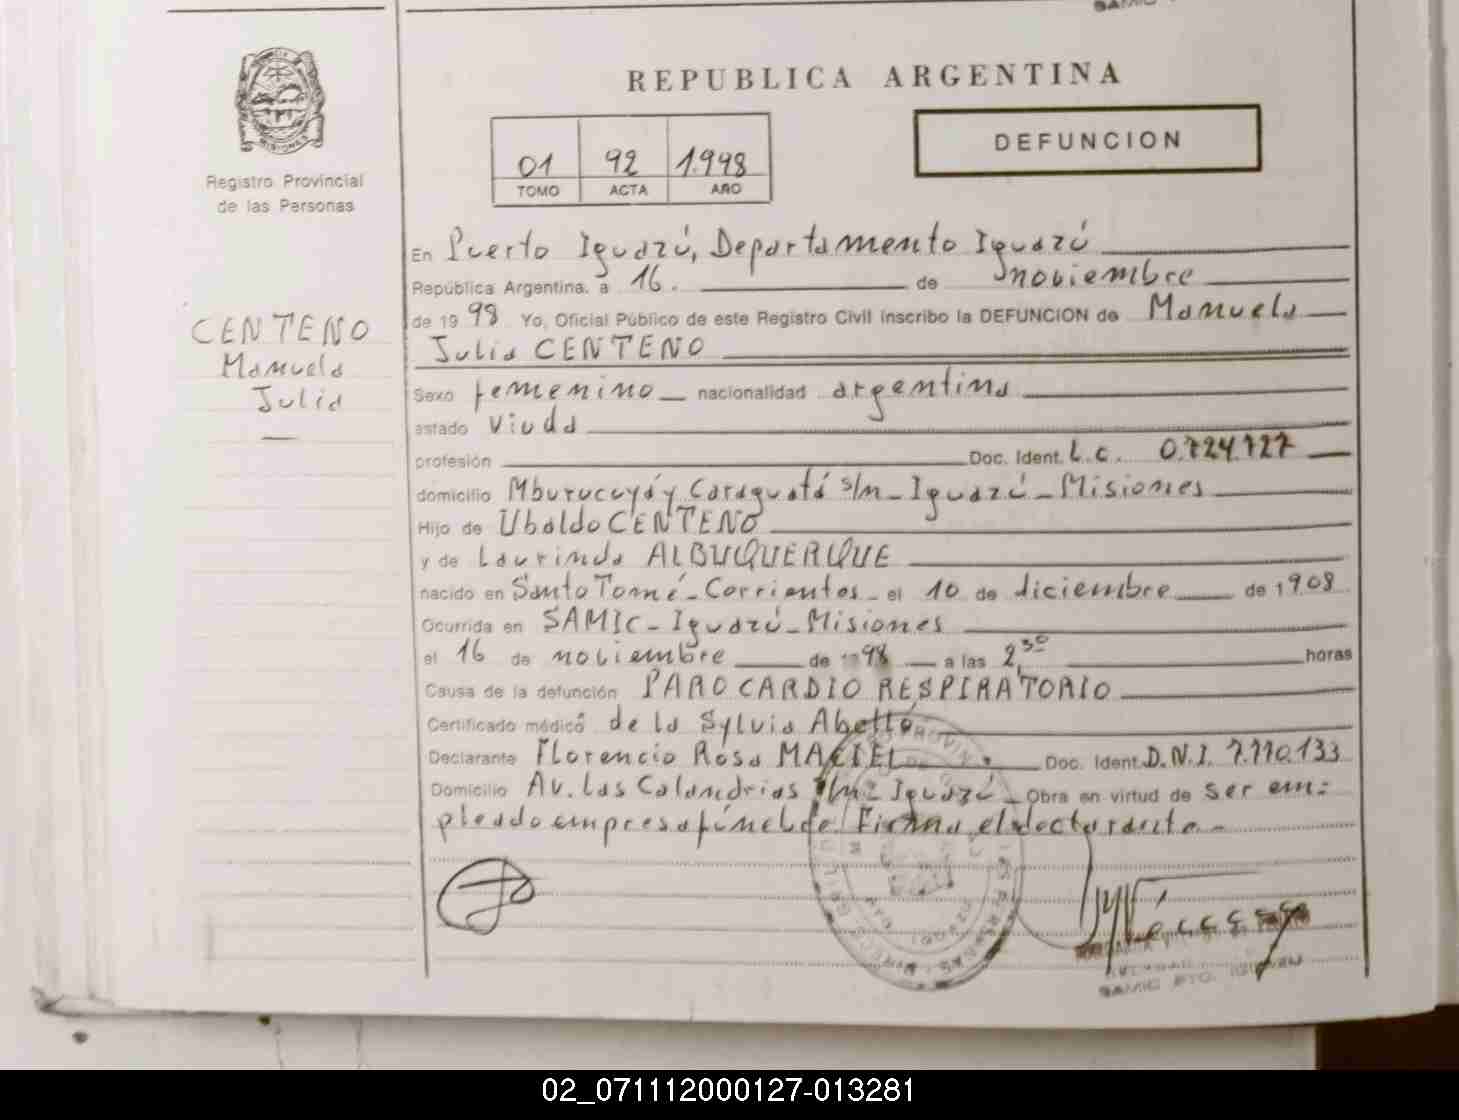 REPUBLICA ARGENTINA
DEFUNCION
01 92 1.998
TOMO ACTA AÑO
MISIONES
Registro Provincial
de las Personas
CENTENO
Manuela
Julia
En Puerto Iguazú, Departamento Iguazú
República Argentina, a 16. de noviembre
de 19 98 Yo, Oficial Público de este Registro Civil inscribo la DEFUNCION de Manuela
Julia CENTENO
Sexo femenino nacionalidad argentina
estado Viuda
profesión Doc. Ident. L.C. 0.724.727
domicilio Mburucuyá y Caraguatá s/n - Iguazú - Misiones
Hijo de Ubaldo CENTENO
y de Laurinda ALBUQUERQUE
nacido en Santo Tomé - Corrientes - el 10 de diciembre de 1908
Ocurrida en SAMIC - Iguazú - Misiones
el 16 de noviembre de 1998 a las 2,30 horas
Causa de la defunción PARO CARDIO RESPIRATORIO
Certificado médico de la Sylvia Abelló
Declarante Florencio Rosa MACIEL Doc. Ident. D.N.I. 7.710.133
Domicilio Av. Las Calandrias s/n - Iguazú - Obra en virtud de ser em=
pleado empresa fúnebre. Firma el declarante -
SAMIC PTO.
02_071112000127-013281